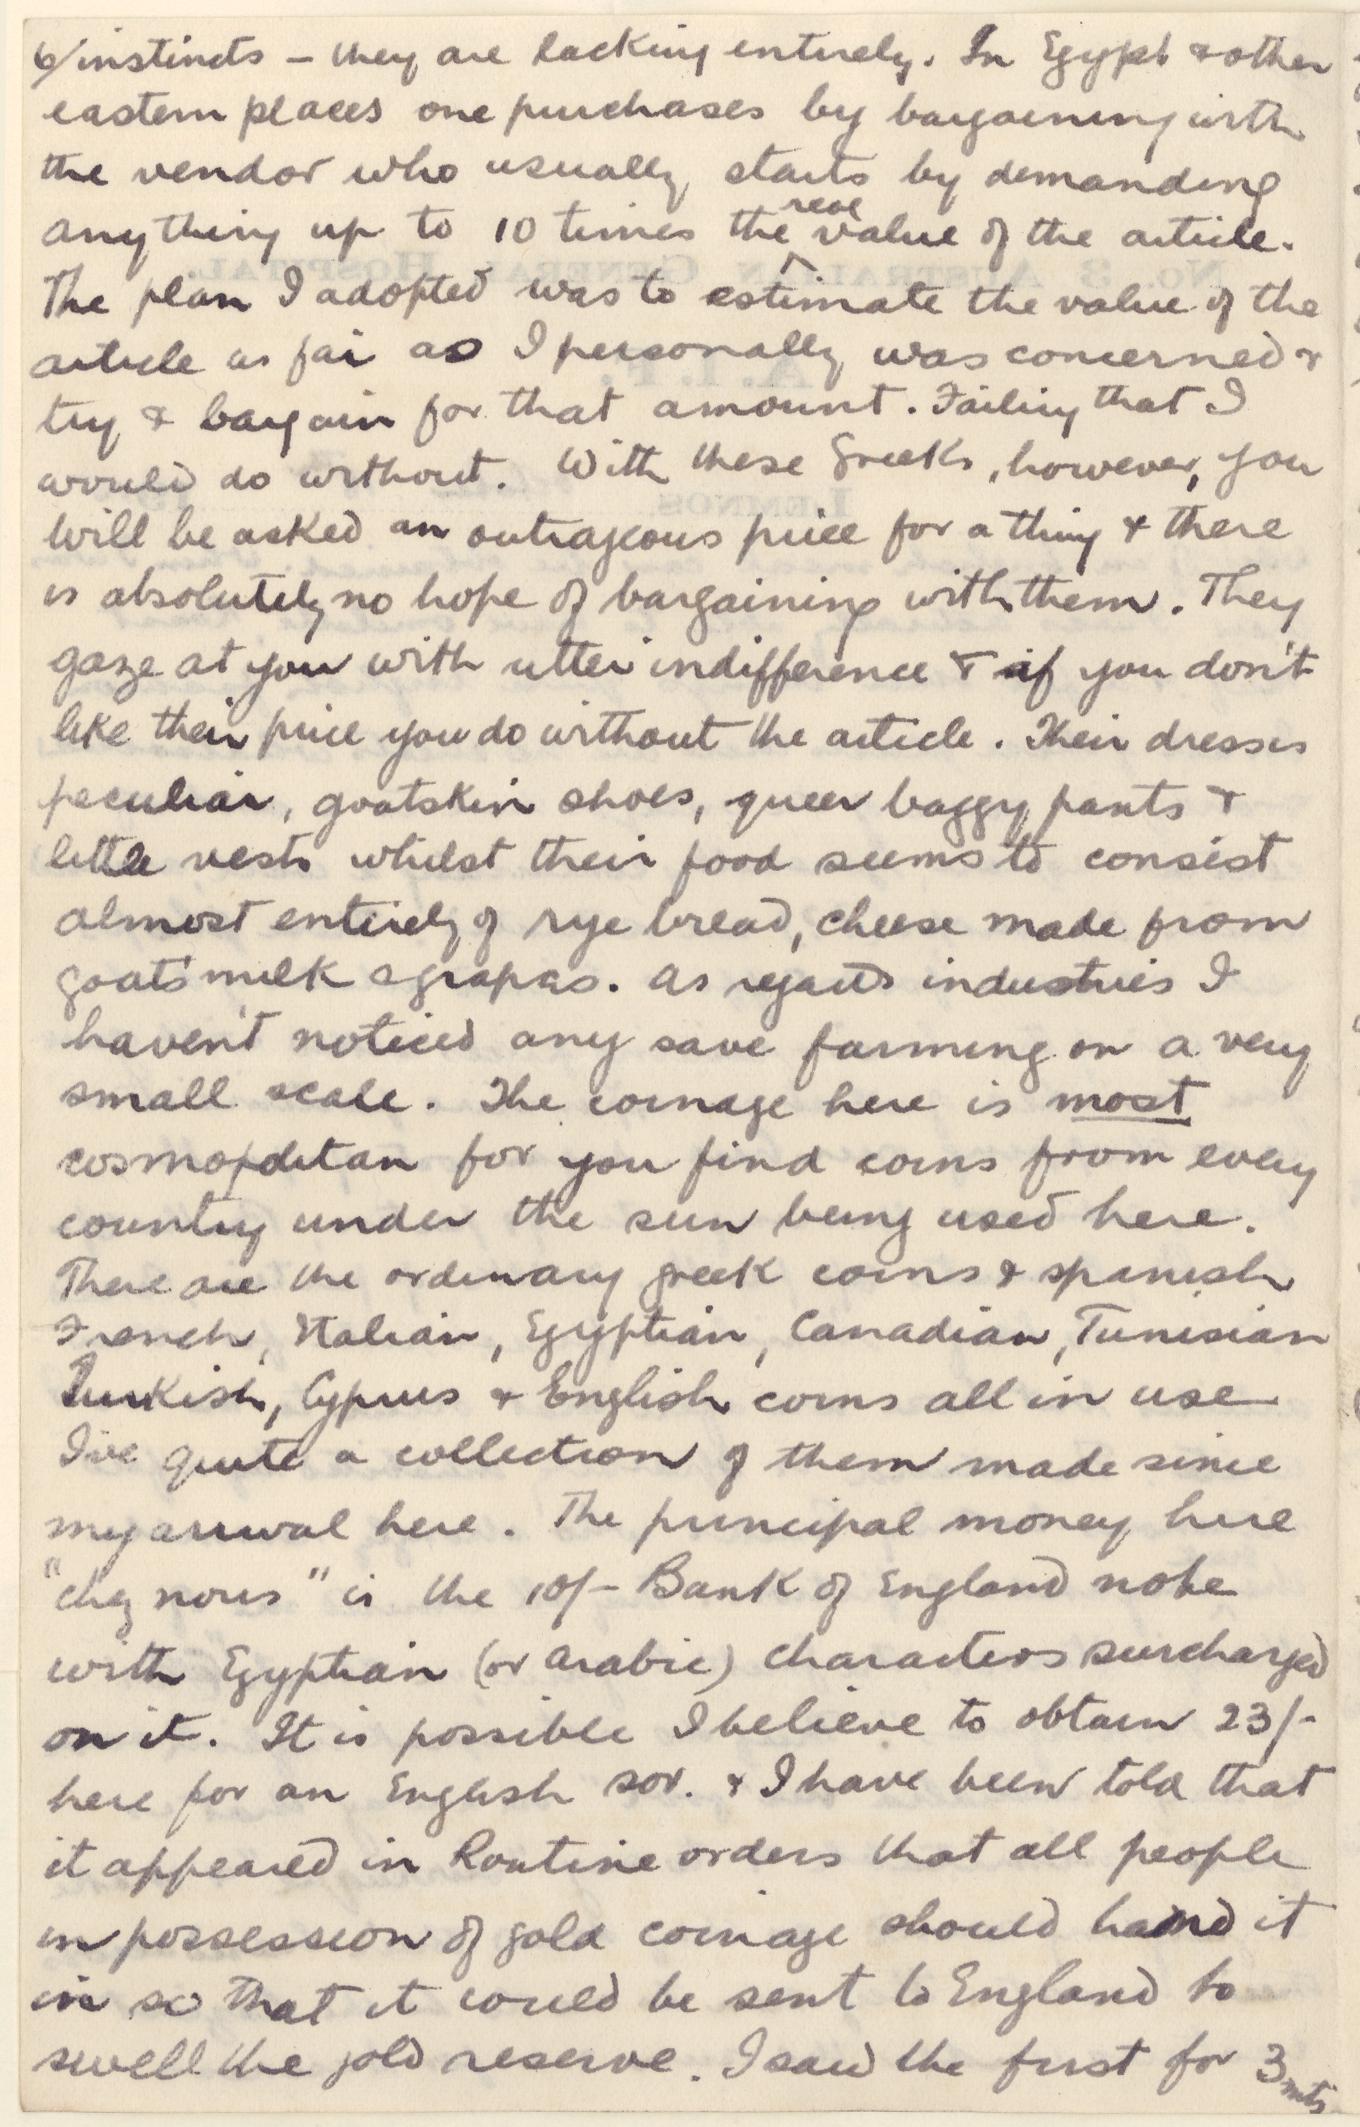 6/ instincts – they are lacking entirely. In Egypt & other
eastern places one purchases by bargaining with
the vendor who usually starts by demanding
anything up to 10 times the real value of the article.
The plan I adopted was to estimate the value of the
article as far as I personally was concerned &
try & bargain for that amount. Failing that I
would do without. With these Greeks, however, you
will be asked an outrageous price for a thing & there
is absolutely no hope of bargaining with them. They
gaze at you with utter indifference & if you don't
like their price you do without the article. Their dresses
peculiar, goatskin shoes, queer baggy pants &
little vests whilst their food seems to consist
almost entirely of rye bread, cheese made from
goats' milk & grapes. As regards industries I
haven't noticed any save farming on a very
small scale. The coinage here is most
cosmopolitan for you find coins from every
country under the sun being used here.
There are the ordinary greek coins & spanish
French, Italian, Egyptian, Canadian, Tunisian
Turkish, Cyprus & English coins all in use
I've quite a collection of them made since
my arrival here. The principal money here
"chez nous" is the 10/- Bank of England note
with Egyptian (or arabic) characters surcharged
on it. It is possible I believe to obtain 23/-
here for an English sov. & I have been told that
it appeared in Routine orders that all people
in possession of gold coinage should hand it
in so that it would be sent to England to
swell the gold reserve. I saw the first for 3 mts
No. 3 Australian General Hospital.
A.I.F.
Lemnos.